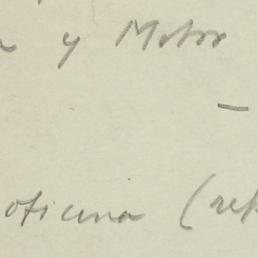 y Motor
—
oficina (ref